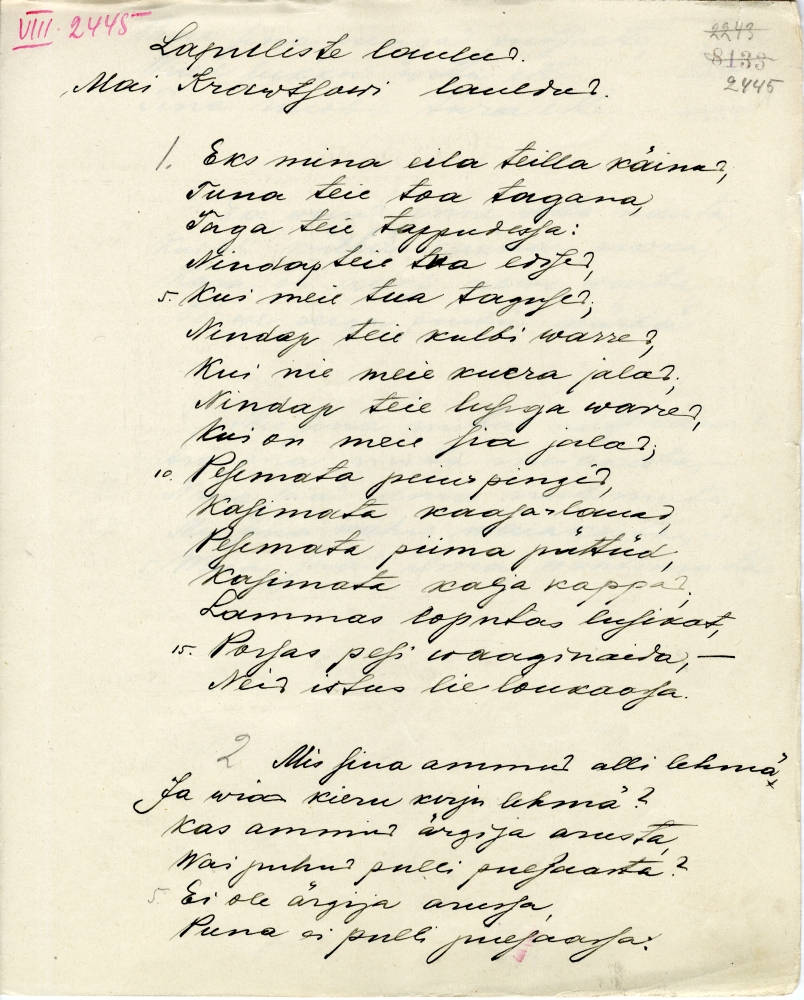 VIII. 2445
2243
8133
2445
Lapuliste laulud.
Mai Krawtsowi lauldud.
1. Eks mina eila teilla käinud,
Tuna teie toa tagana,
Taga teie tappudessa:
Nindap teie tua edised,
5. Kui meie tua tagused;
Nindap teie kulbi warred,
Kui nie meie kuera jalad;
Nindap teie lusiga warred,
Kui on meie sia jalad;
10. Pesemata peiu pingid,
Kasimata kaasa-lauad,
Pesemata piima püttüd,
Kasimata kalja kappad;
Lammas loputas lusikat,
15. Porsas pesi waaginaida, —
Neid istus lie loukaassa.
2 Mis sina ammud alli lehmä,
Ja wiad kieru kirju lehmä?
Kas ammud ärgija arusta,
Wai puhud pulli puesaasta?
5. Ei ole ärgija arussa,
Puna ei pulli puesaassa.